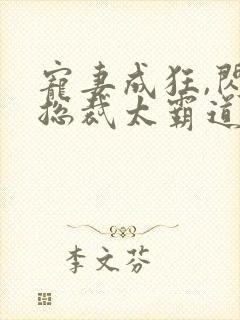 寵妻成狂,閃
總裁太霸道
李文芬